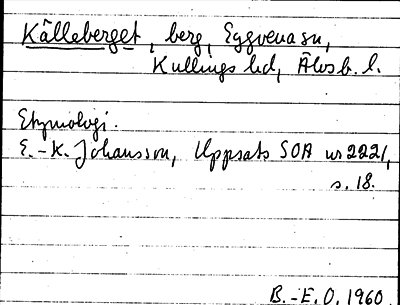 Kålleberget, berg, Eggvena sn,
Kullings hd, Älvsb. l.
Etymologi.
E.-K. Johansson, Uppsats SOA nr 2221,
s. 18.
B.-E. O. 1960